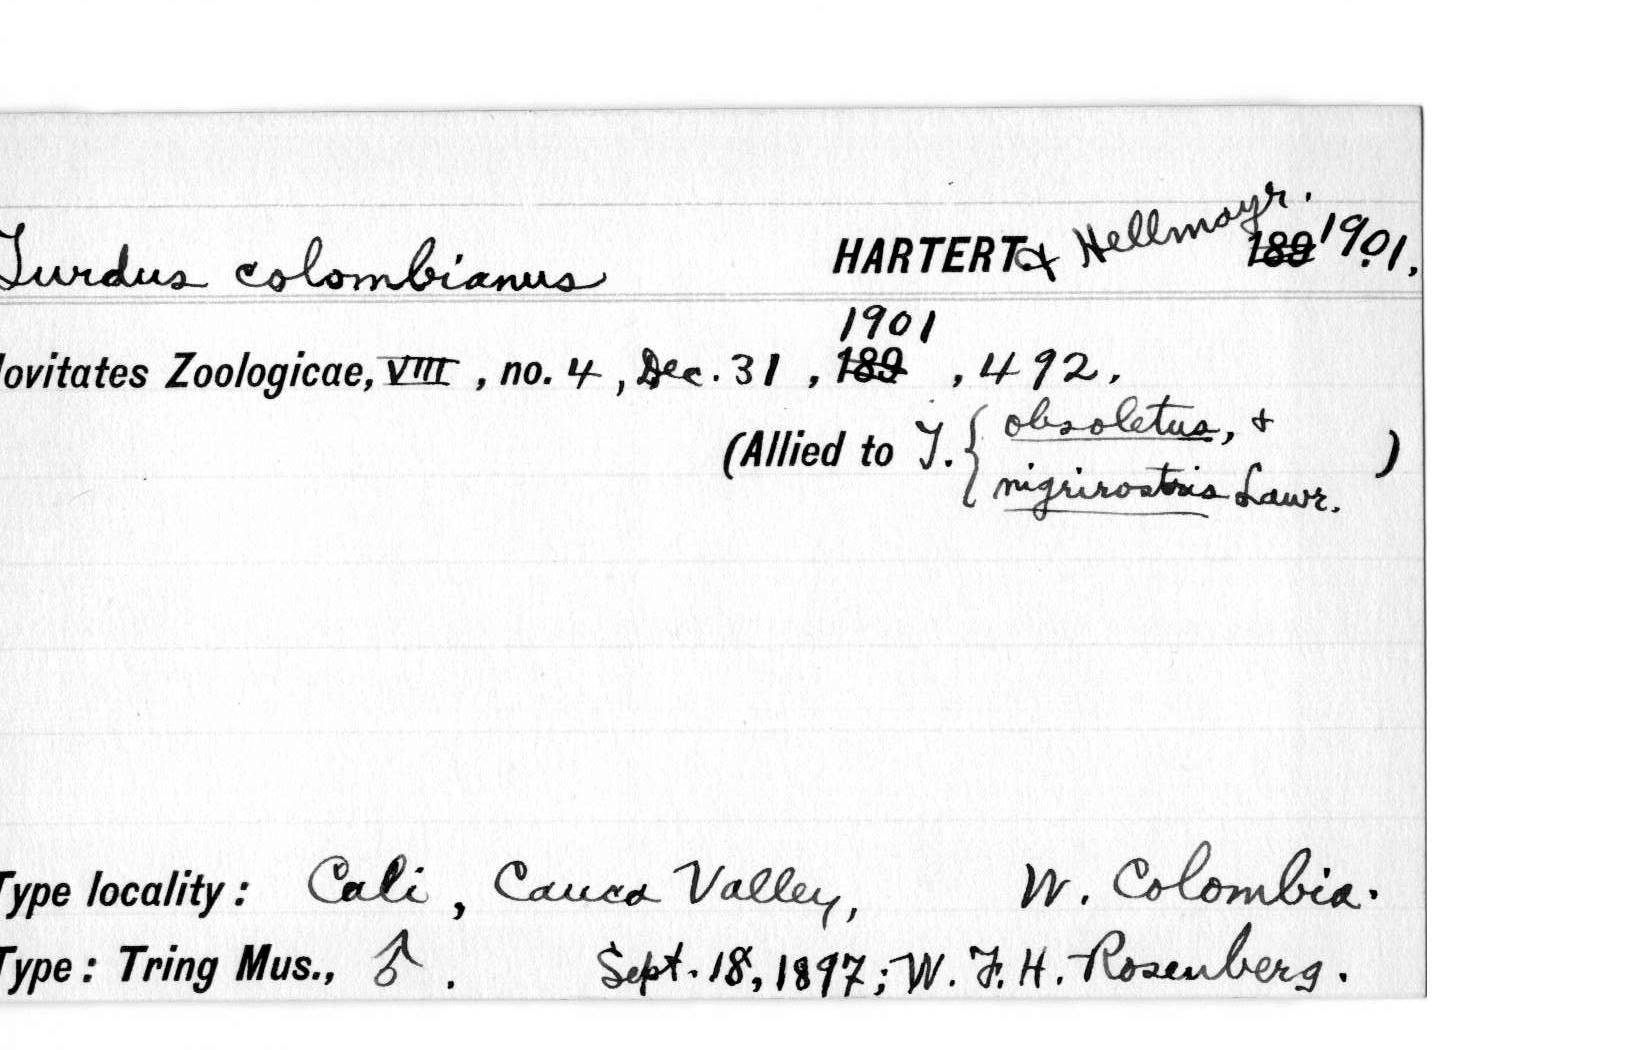 Turdus colombianus HARTERT. & Hellmayr. 189 1901.
1901
ovitates Zoologicae, VIII, no. 4, Dec. 31, 189, 492.
(Allied to T. { obsoletus, & )
nigrirostris Lawr.
Type locality: Cali, Cauca Valley, W. Colombia.
Type: Tring Mus., ♂. Sept. 18, 1897; W. F. H. Rosenberg.